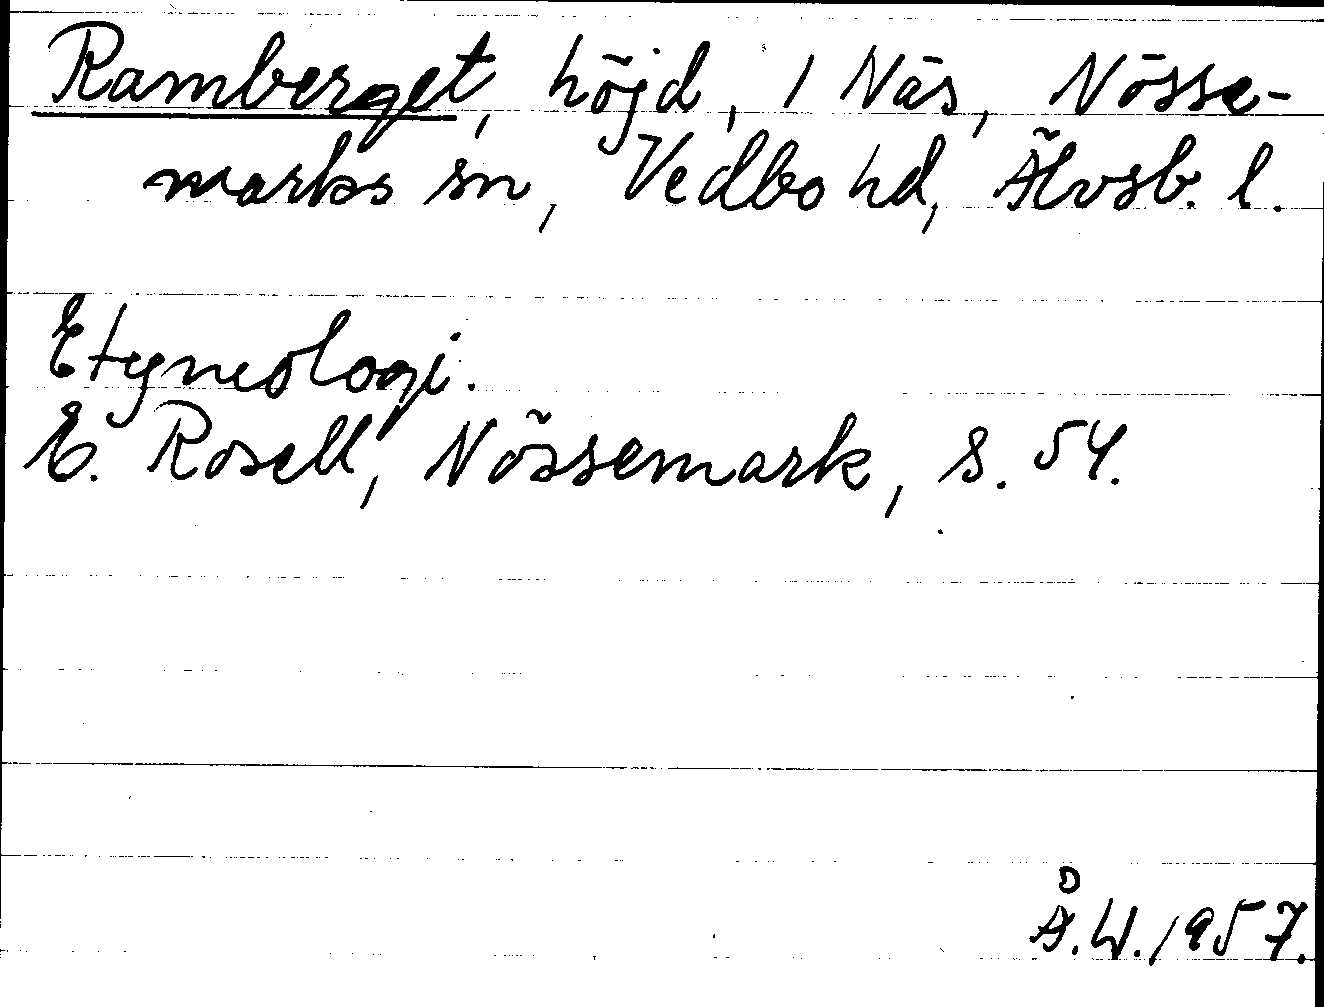 Ramberget, höjd, 1 Näs, Nösse-
marks sn, Vedbo hd, Älvsb. l.
Etymologi.
E. Rosell, Nössemark, s. 54.
Å.W.1957.